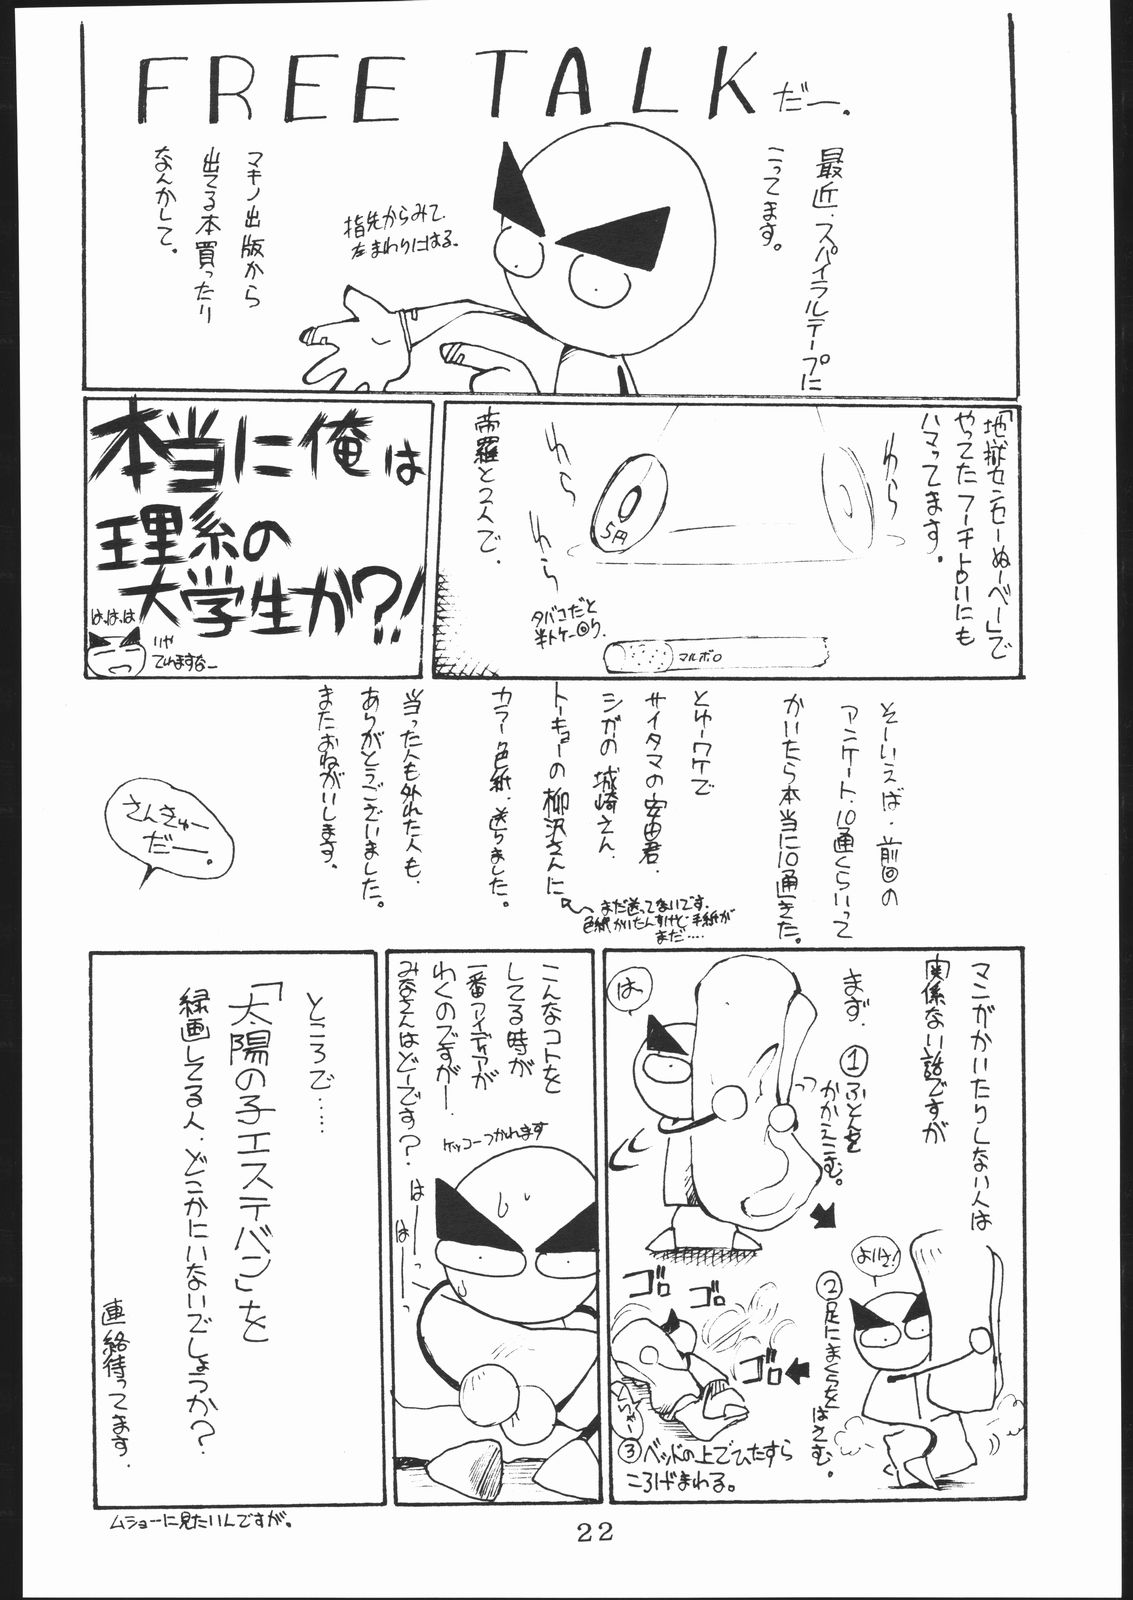 FREE TALKだー。
最近、スパイラルテープに
こってます。
指先からみて、
左まわりにはる。
マキノ出版から
出てる本買ったり
なんかして。
「地獄センセーぬ〜べ〜」で
やってたフーチ占いにも
ハマってます。
帝羅と2人で。
わら
わら
わら
5円
タバコだと
マルボロ
本当に俺は
理系の
大学生か?!
は、は、は
そーいえば、前回の
アンケート、10通くらいって
かいたら本当に10通きた。
とゆーワケで
サイタマの安田君、
シガの城崎さん、
トーキョーの柳沢さんに
カラー色紙、送りました。
まだ送ってないです。
色紙かいたんすけど手紙が
まだ……
当った人も外れた人も、
ありがとうございました。
またおねがいします。
さんきゅー
だー。
マンガかいたりしない人は
関係ない話ですが
まず、
①ふとんを
かかえこむ。
は、
②足にまくらをはさむ。
よいせ!
③ベッドの上でひたすら
ころげまわる。
ゴロ
ゴロ
ゴロ
こんなコトを
してる時が
一番アイディアが
わくのですがー、
みなさんはどーです?
ケッコーつかれます
はーっ
はーっ
ところで……
「太陽の子エステバン」を
録画してる人、どこかにいないでしょうか?
連絡待ってます。
ムショーに見たいんですが。
22